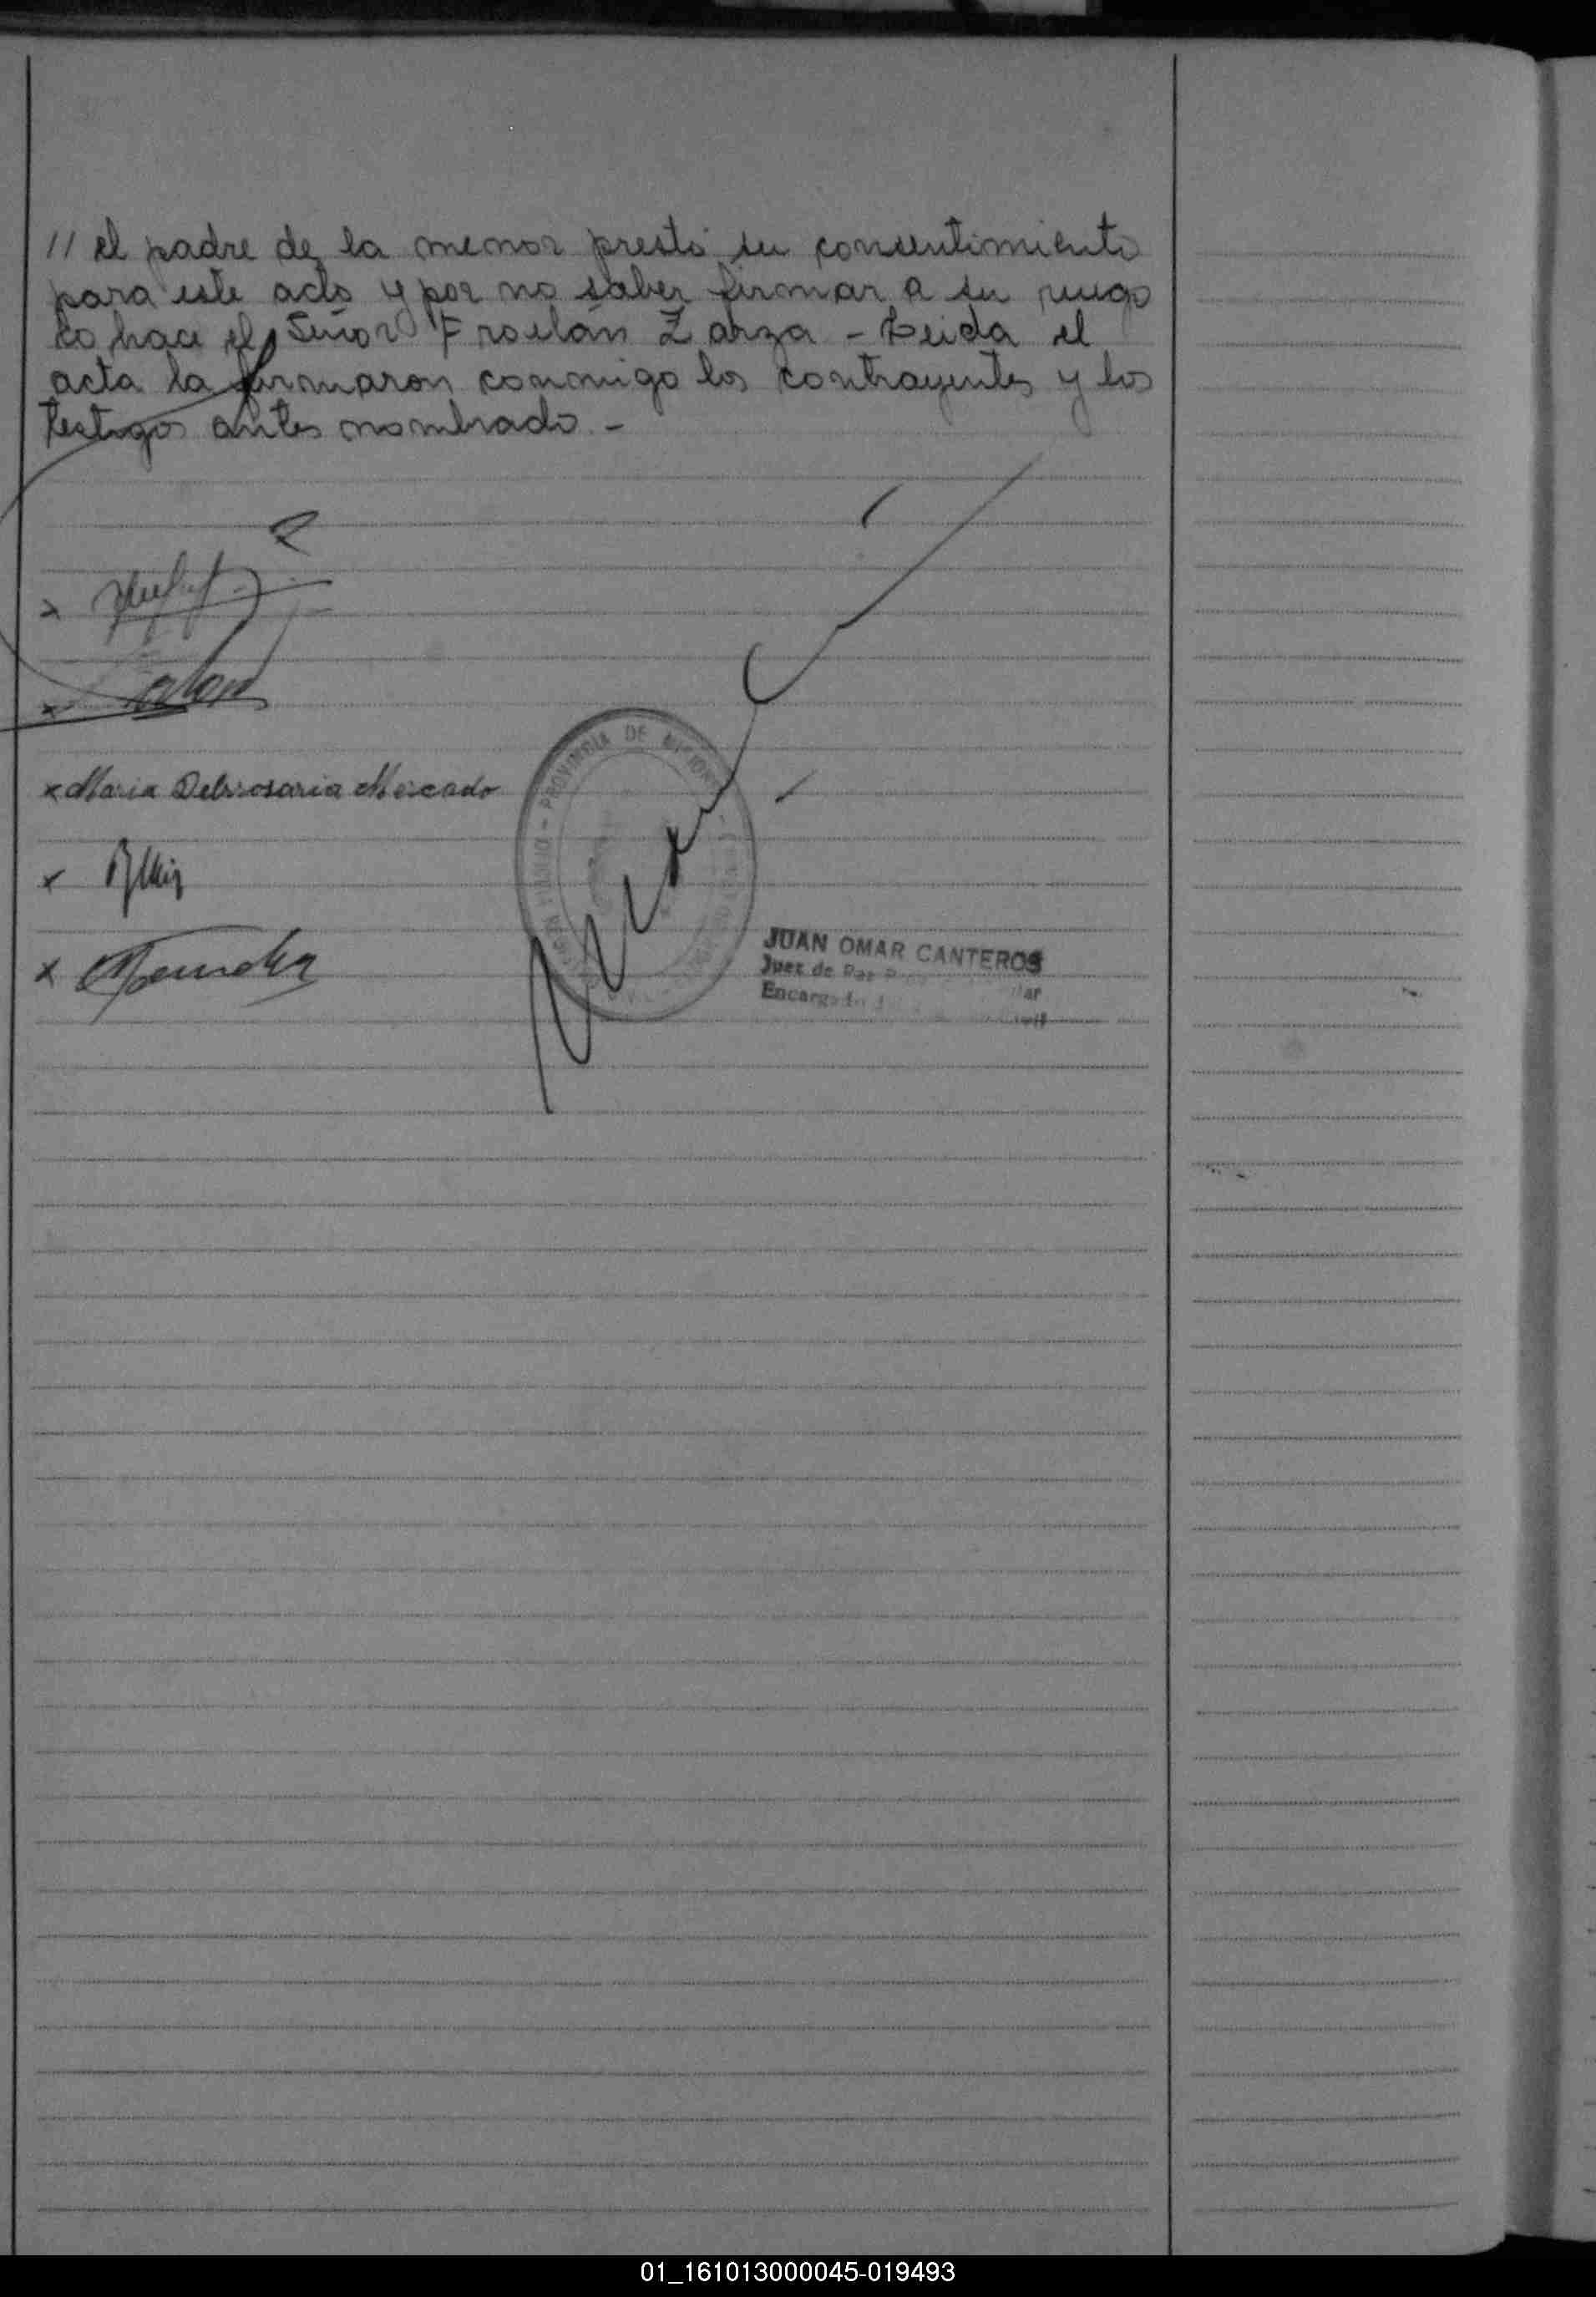 // el padre de la menor prestó su consentimiento
para este acto y por no saber firmar a su ruego
lo hace el Señor Froilán Zarza - Leida el
acta la firmaron conmigo los contrayentes y los
testigos antes nombrado. -
x Maria Delrrosaria Mercado
PROVINCIA DE MISIONES
JUAN OMAR CANTEROS
Juez de Paz
Encargado
01_161013000045-019493